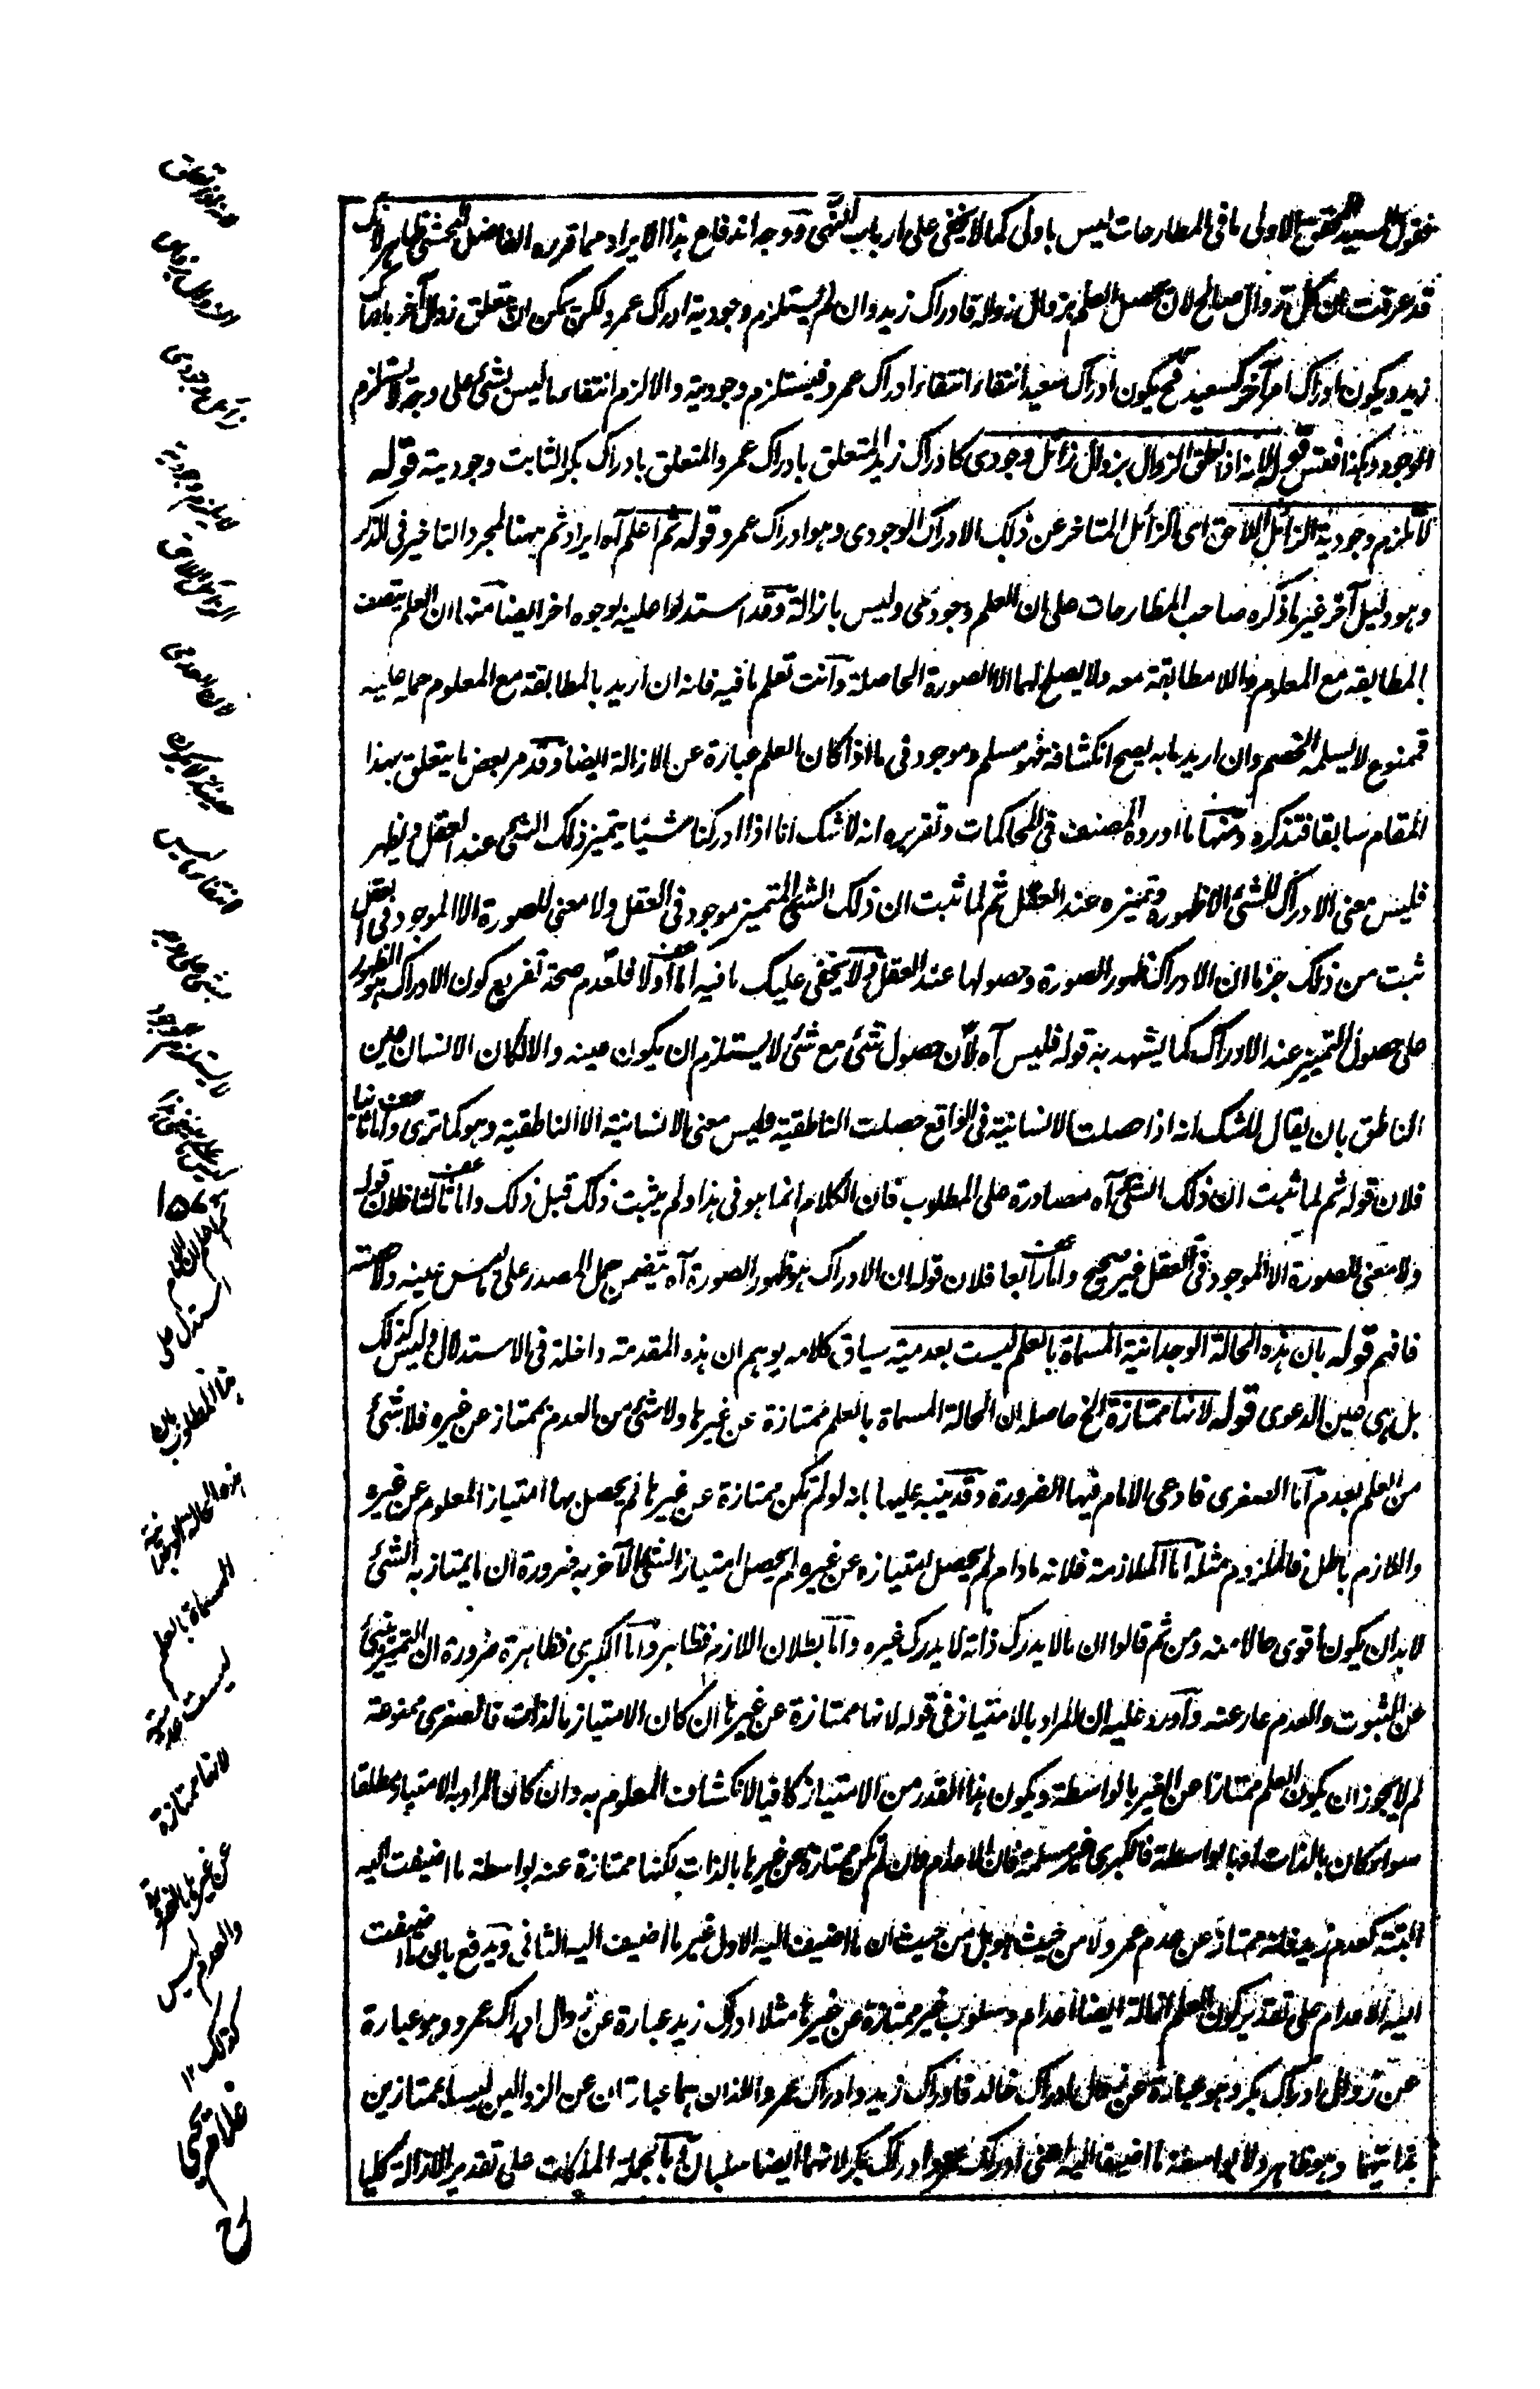 فقول السيد المحقق الاولى ما فى المطارحات ليس باولى كما لا يخفى على ارباب النهى ووجه اندفاع هذا الايراد مما قرره الفاضل المحشى ظاهر لانك
قد عرفت ان كل زوال صالح لان يحصل العلم بزواله فادراك زيد وان لم يستلزم وجودية ادراك عمرو لكن يمكن ان يتعلق زوال آخر بادراك
زيد ويكون ادراك امر آخر كسعيد فح يكون ادراك سعيد انتفاء انتفاء ادراك عمرو فيستلزم وجوديته والا لزم انتفاء ما ليس بشئ على وجه لا يستلزم
الوجود وهكذا فتش قوله لانه اذا تعلق الزوال بزوال زائل وجودى كادراك زيد المتعلق بادراك عمرو المتعلق بادراك بكر الثابت وجوديته قوله
لا يلزم وجودية الزائل اللاحق اى الزائل المتاخر عن ذلك الادراك الوجودى وهو ادراك عمرو قوله ثم اعلم آه ايراد ثم ههنا لمجرد التاخير فى الذكر
وهو دليل آخر غير ما ذكره صاحب المطارحات على ان العلم وجودى وليس بازالة وقد استدلوا عليه بوجوه اخر ايضا منها ان العلم يتصف
بالمطابقة مع المعلوم واللا مطابقة معه ولا يصلح لهما الا الصورة الحاصلة وانت تعلم ما فيه فانه ان اريد بالمطابقة مع المعلوم حمله عليه
فممنوع لا يسلمه الخصم وان اريد ما به يصح انكشافه فهو مسلم وموجود فى ما اذا كان العلم عبارة عن الازالة ايضا وقد مر بعض ما يتعلق بهذا
المقام سابقا فتذكره ومنها ما اورده المصنف فى المحاكمات وتقريره انه لا شك انا اذا ادركنا شيئا يتميز ذلك الشئ عند العقل ويظهر
فليس معنى الادراك للشئ الا ظهوره وتميزه عند العقل ثم لما ثبت ان ذلك الشئ المتميز موجود فى العقل ولا معنى للصورة الا الموجود فى العقل
ثبت من ذلك جزما ان الادراك ظهور الصورة وحصولها عند العقل ولا يخفى عليك ما فيه اما اولا فلعدم صحة تفريع كون الادراك هو الظهور
على حصول التميز عند الادراك كما يشهد به قوله فليس آه لان حصول شئ مع شئ لا يستلزم ان يكون عينه والا لكان الانسان عين
الناطق بان يقال لا شك انه اذا حصلت الانسانية فى الواقع حصلت الناطقية فليس معنى الانسانية الا الناطقية وهو كما ترى واما ثانيا
فلان قوله ثم لما ثبت ان ذلك الشئ آه مصادرة على المطلوب فان الكلام انما هو فى هذا ولم يثبت ذلك قبل ذلك واما ثالثا فلان قوله
ولا معنى للصورة الا الموجود فى العقل غير صحيح واما رابعا فلان قوله ان الادراك هو ظهور الصورة آه يتضمن حمل المصدر على ما ليس عينه ولا صفته
فافهم قوله بان هذه الحالة الوجدانية المسماة بالعلم ليست بعدمية سياق كلامه يوهم ان هذه المقدمة داخلة فى الاستدلال وليس كذلك
بل هى عين الدعوى قوله لانها ممتازة الخ حاصله ان الحالة المسماة بالعلم ممتازة عن غيرها ولا شئ من العدم بممتاز عن غيره فلا شئ
من العلم بعدم اما الصغرى فادعى الامام فيها الضرورة وقد ينبه عليها بانه لو لم تكن ممتازة عن غيرها لم يحصل بها امتياز المعلوم عن غيره
واللازم باطل فالملزوم مثله اما الملازمة فلانه ما دام لم يحصل امتيازه عن غيره لم يحصل امتياز الشئ الآخر به ضرورة ان ما يمتاز به الشئ
لا بد ان يكون اقوى حالا منه ومن ثم قالوا ان ما لا يدرك ذاته لا يدرك غيره واما بطلان اللازم فظاهر واما الكبرى فظاهرة ضرورة ان التميز ينبئ
عن الثبوت والعدم عار عنه واورد عليه ان المراد بالامتياز فى قوله لانها ممتازة عن غيرها ان كان الامتياز بالذات فالصغرى ممنوعة
لم لا يجوز ان يكون العلم ممتازا عن الغير بالواسطة ويكون هذا القدر من الامتياز كافيا لانكشاف المعلوم به وان كان المراد به الامتياز مطلقا
سواء كان بالذات او بالواسطة فالكبرى غير مسلمة فان الاعدام وان لم تكن ممتازة عن غيرها بالذات لكنها ممتازة عنه بواسطة ما اضيفت اليه
البتة كعدم زيد فانه ممتاز عن عدم عمرو لا من حيث هو بل من حيث ان ما اضيف اليه الاول غير ما اضيف اليه الثانى ويدفع بان ما اضيفت
اليه الاعدام على تقدير كون العلم ازالة ايضا اعدام وسلوب غير ممتازة عن غيرها مثلا ادراك زيد عبارة عن زوال ادراك عمرو وهو عبارة
عن زوال ادراك بكر وهو عبارة عن زوال ادراك خالد فادراك زيد وادراك عمرو اللذان هما عبارتان عن الزوالين ليسا بممتازين
بذاتيهما وهو ظاهر ولا بواسطة ما اضيفا اليه اعنى ادراك عمرو وادراك بكر لانهما ايضا سلبان وبالجملة المدركات على تقدير الازالة كليا
لانه اذا تعلق
الزوال بزوال
زائل وجودى
لا يلزم وجودية
الزائل اللاحق
انتفاء ما ليس
بشئ على وجه
ثم اعلم ان الامام
استدل على
هذا المطلوب بان
هذه الحالة الوجدانية
المسماة بالعلم
ليست عدمية
لانها ممتازة
عن غيرها بالضرورة
والعدم ليس
كذلك ١٢
غلام يحيى